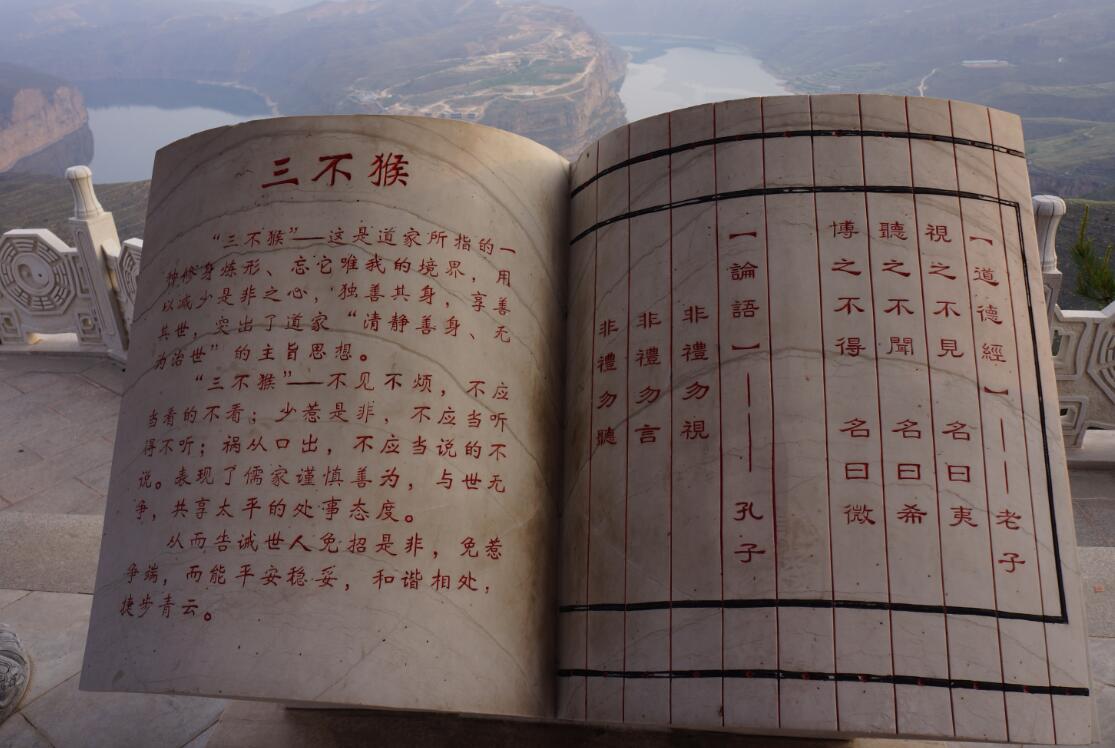 三不猴
“三不猴”——这是道家所指的一
种修身炼形、忘它唯我的境界，用
以减少是非之心，独善其身，享善
其世，突出了道家“清静善身、无
为治世”的主旨思想。
“三不猴”——不见不烦，不应
当看的不看；少惹是非，不应当听
得不听；祸从口出，不应当说的不
说。表现了儒家谨慎善为，与世无
争，共享太平的处事态度。
从而告诫世人免招是非，免惹
争端，而能平安稳妥，和谐相处，
捷步青云。
【道德經】——老子
視之不見 名曰夷
聽之不聞 名曰希
博之不得 名曰微
【論語】———孔子
非禮勿視
非禮勿言
非禮勿聽